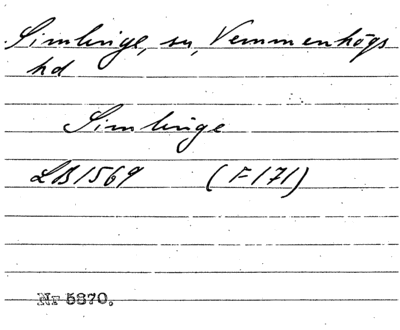 Simlinge, sn, Vemmenhögs
hd
Simlinge
LB 1569 (F 171)
Nr 5870.